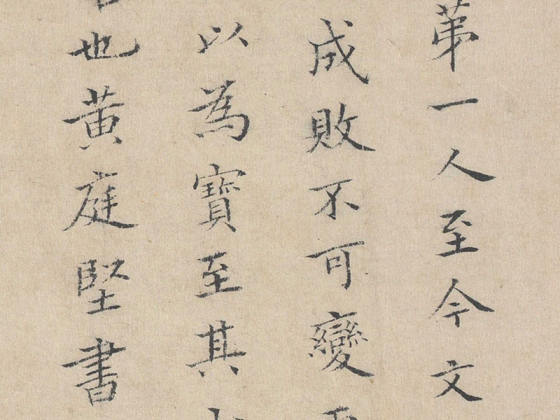 第一人至今文
成敗不可變
以為寶至其
也黃庭堅書